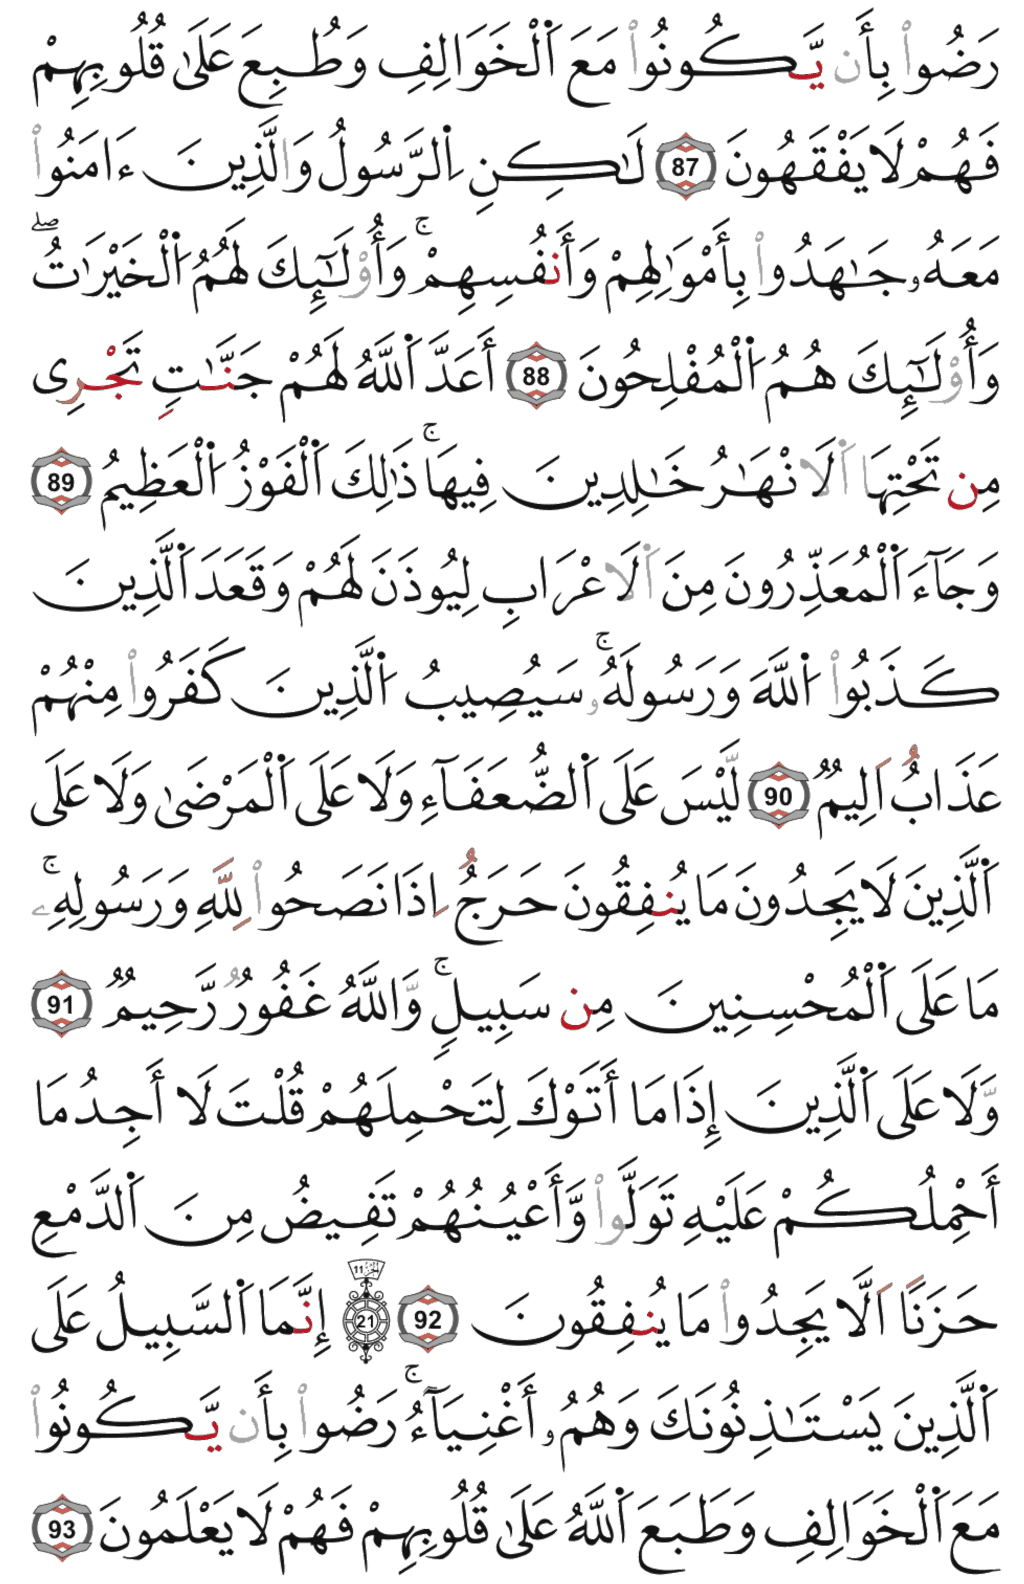 رَضُواْ بِأَن يَّكُونُواْ مَعَ اَ۬لْخَوَالِفِ وَطُبِعَ عَلَىٰ قُلُوبِهِمْ
فَهُمْ لَا يَفْقَهُونَ 87 لَٰكِنِ اِ۬لرَّسُولُ وَالَّذِينَ ءَامَنُواْ
مَعَهُۥ جَٰهَدُواْ بِأَمْوَٰلِهِمْ وَأَنفُسِهِمْۚ وَأُوْلَٰٓئِكَ لَهُمُ اُ۬لْخَيْرَٰتُۖ
وَأُوْلَٰٓئِكَ هُمُ اُ۬لْمُفْلِحُونَ 88 أَعَدَّ اَ۬للَّهُ لَهُمْ جَنَّٰتٍ تَجْرِى
مِن تَحْتِهَا اَ۬لَانْهَٰرُ خَٰلِدِينَ فِيهَاۚ ذَٰلِكَ اَ۬لْفَوْزُ اُ۬لْعَظِيمُ 89
وَجَآءَ اَ۬لْمُعَذِّرُونَ مِنَ اَ۬لَاعْرَابِ لِيُوذَنَ لَهُمْ وَقَعَدَ اَ۬لَّذِينَ
كَذَبُواْ اُ۬للَّهَ وَرَسُولَهُۥۚ سَيُصِيبُ اُ۬لَّذِينَ كَفَرُواْ مِنْهُمْ
عَذَابٌ اَلِيمٌ 90 لَّيْسَ عَلَى اَ۬لضُّعَفَآءِ وَلَا عَلَى اَ۬لْمَرْضَىٰ وَلَا عَلَى
اَ۬لَّذِينَ لَا يَجِدُونَ مَا يُنفِقُونَ حَرَجٌ اِذَا نَصَحُواْ لِلَّهِ وَرَسُولِهِۦۚ
مَا عَلَى اَ۬لْمُحْسِنِينَ مِن سَبِيلٍۚ وَّاللَّهُ غَفُورٌ رَّحِيمٌ 91
وَّلَا عَلَى اَ۬لَّذِينَ إِذَا مَا أَتَوْكَ لِتَحْمِلَهُمْ قُلْتَ لَا أَجِدُ مَا
أَحْمِلُكُمْ عَلَيْهِ تَوَلَّواْ وَّأَعْيُنُهُمْ تَفِيضُ مِنَ اَ۬لدَّمْعِ
حَزَنًا اَلَّا يَجِدُواْ مَا يُنفِقُونَ 92 الجزء 11 21 إِنَّمَا اَ۬لسَّبِيلُ عَلَى
اَ۬لَّذِينَ يَسْتَٰذِنُونَكَ وَهُمُۥ أَغْنِيَآءُۚ رَضُواْ بِأَن يَّكُونُواْ
مَعَ اَ۬لْخَوَالِفِ وَطَبَعَ اَ۬للَّهُ عَلَىٰ قُلُوبِهِمْ فَهُمْ لَا يَعْلَمُونَ 93